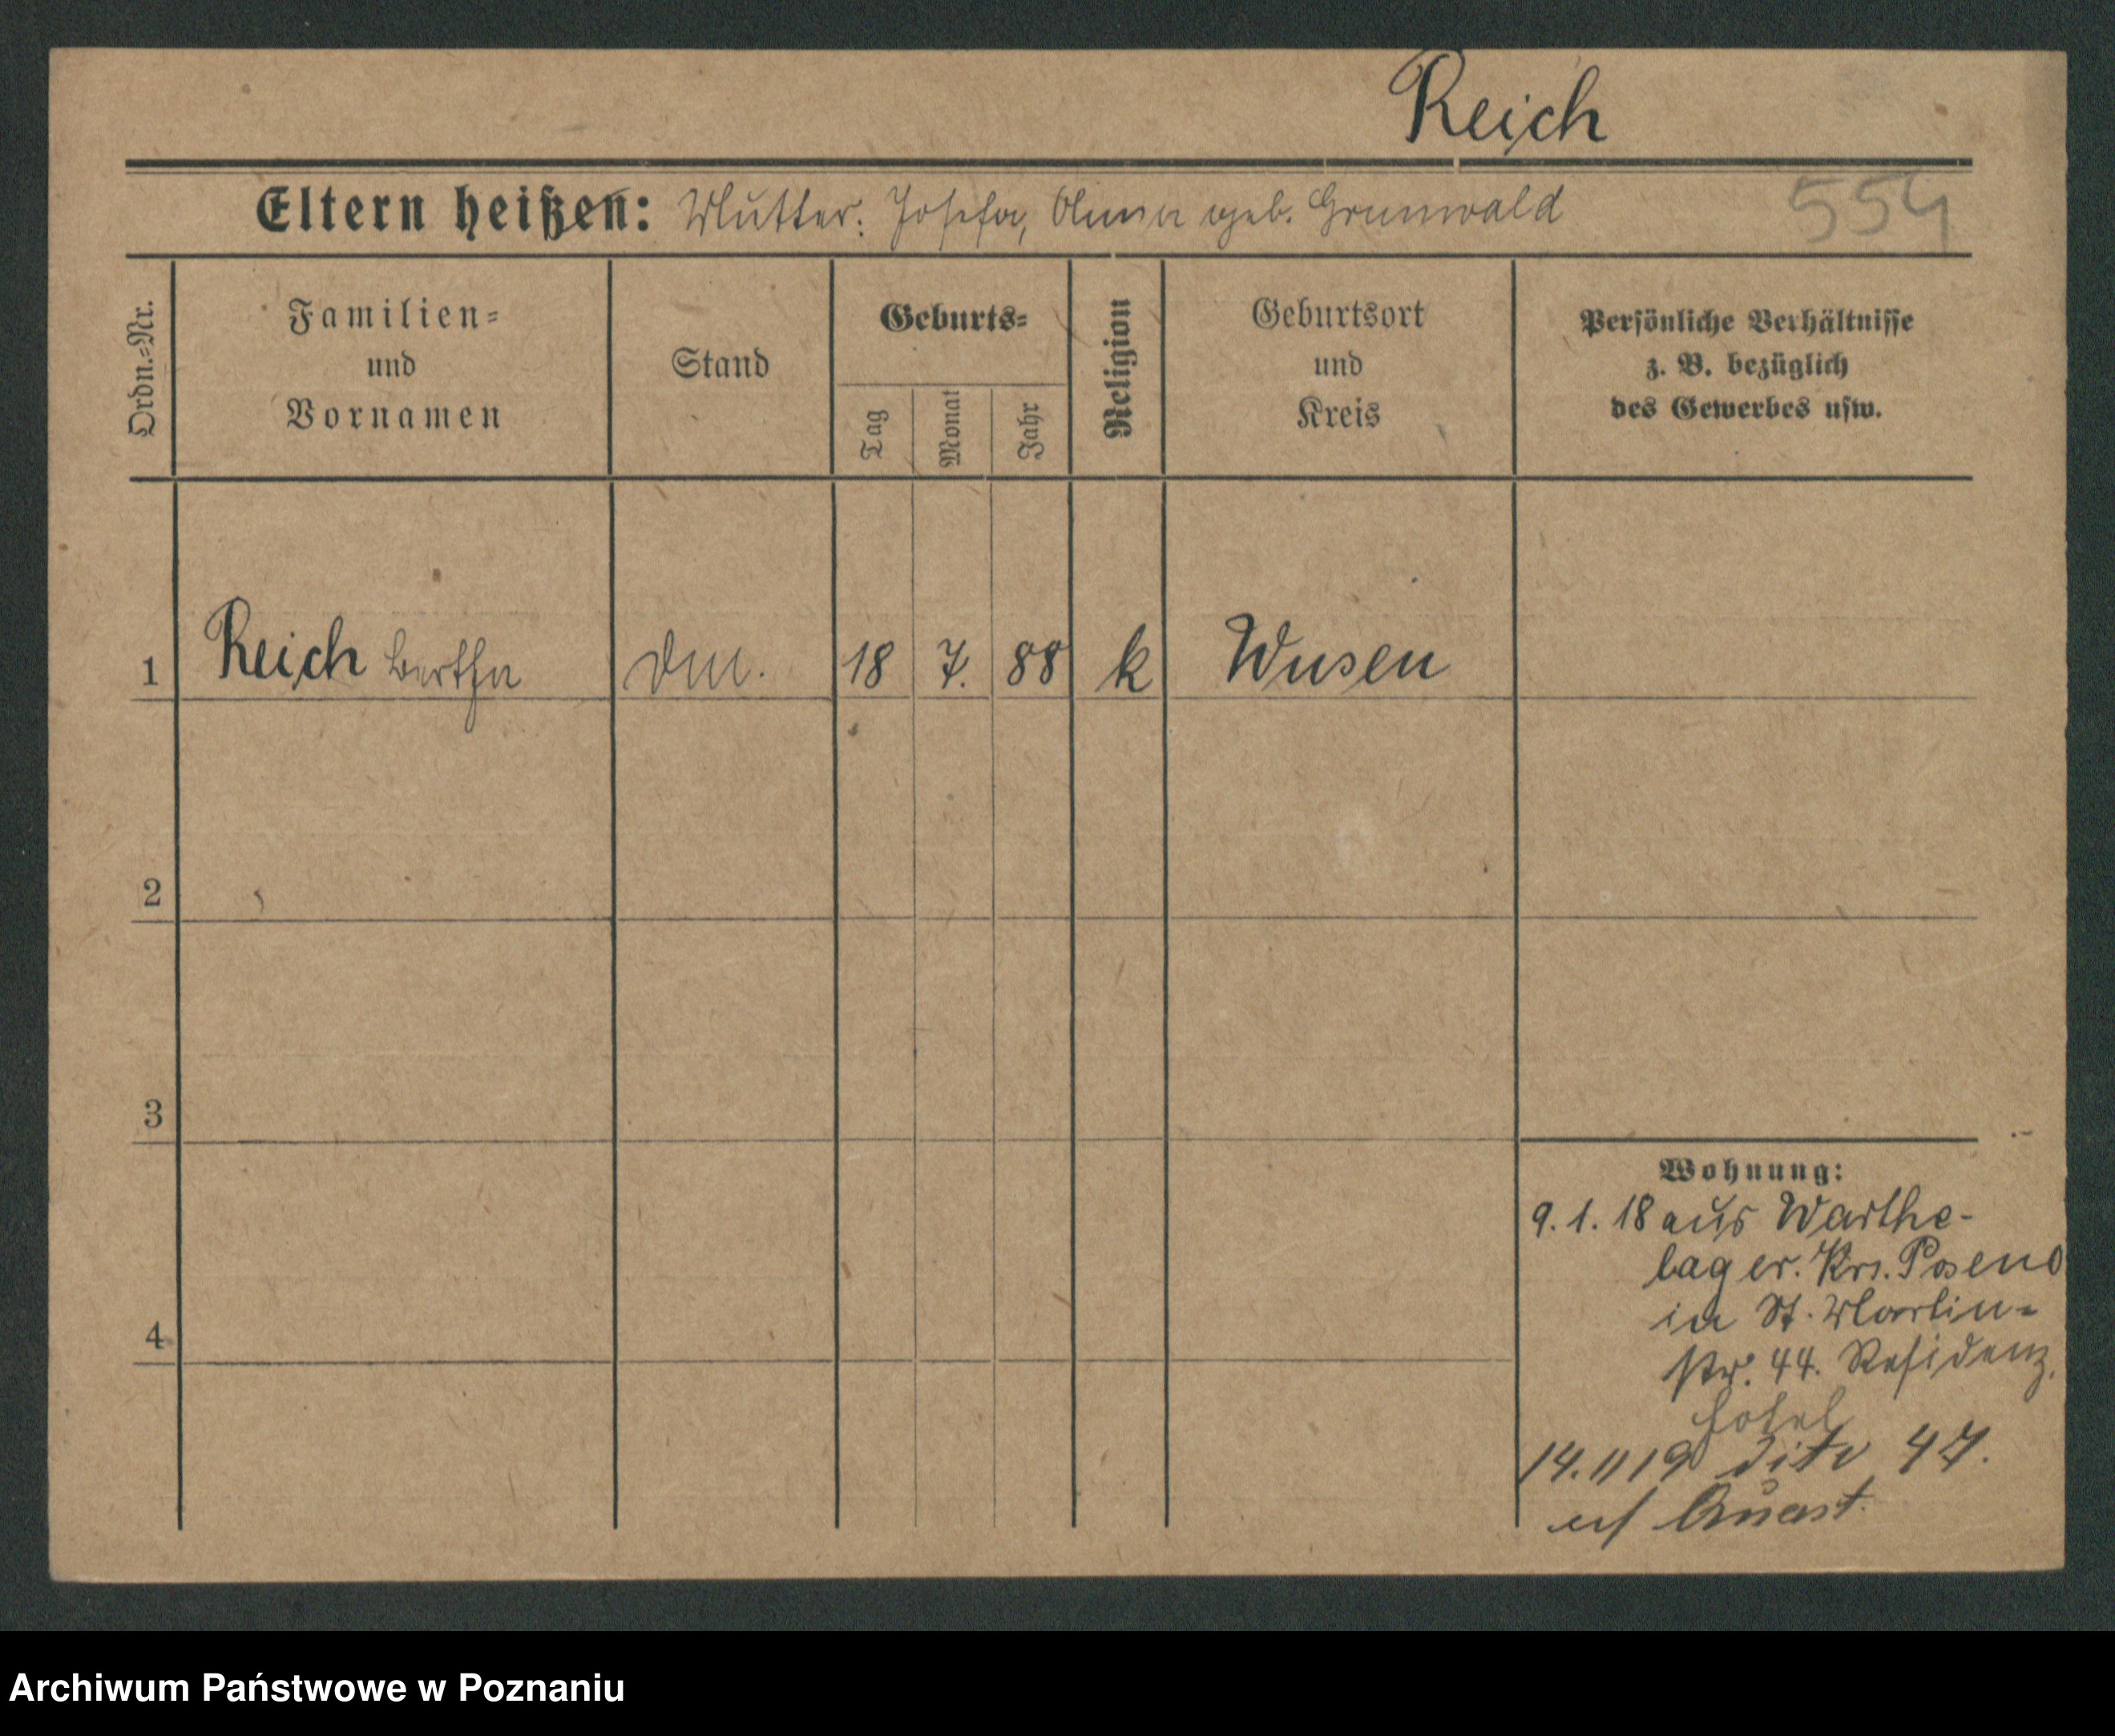 Reich
Eltern heißen: Mutter: Josefa, Anna geb. Grunwald
554
Ordn.=Nr.
Familien=
und
Vornamen
Stand
Geburts=
Tag
Monat
Jahr
Religion
Geburtsort
und
Kreis
Persönliche Verhältnisse
z. B. bezüglich
des Gewerbes usw.
1 Reich Bertha 18 7. 88 k Wusen
2
3
4
Wohnung:
9.1.18 aus Warthe-
lager. Krs. Poseno
in St. Martin-
str. 44. Residenz.
hotel
14.1119 dito 47.
Quast.
Archiwum Państwowe w Poznaniu